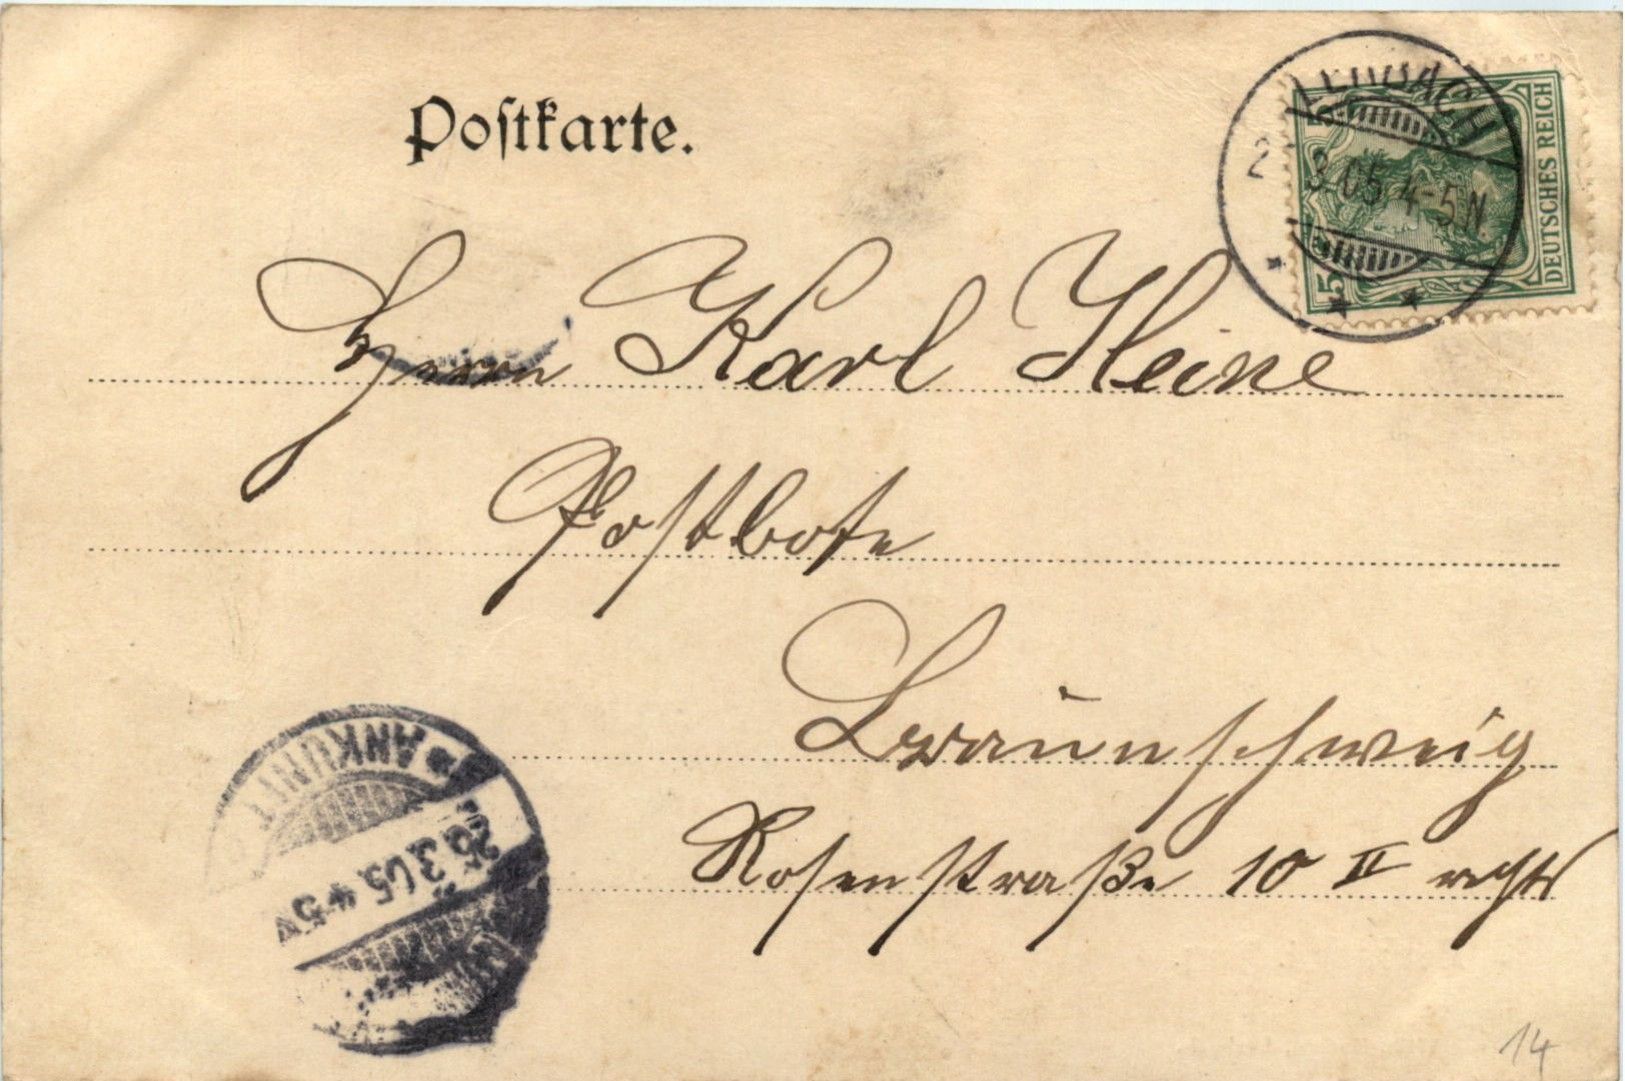 Postkarte.
LERBACH
3.05.4-5N.
DEUTSCHES REICH
5
5
Herrn Karl Heine
Postbote
Braunschweig
Rosenstraße 10 II rechts
ANKUNFT
26.3.05.4-5
14